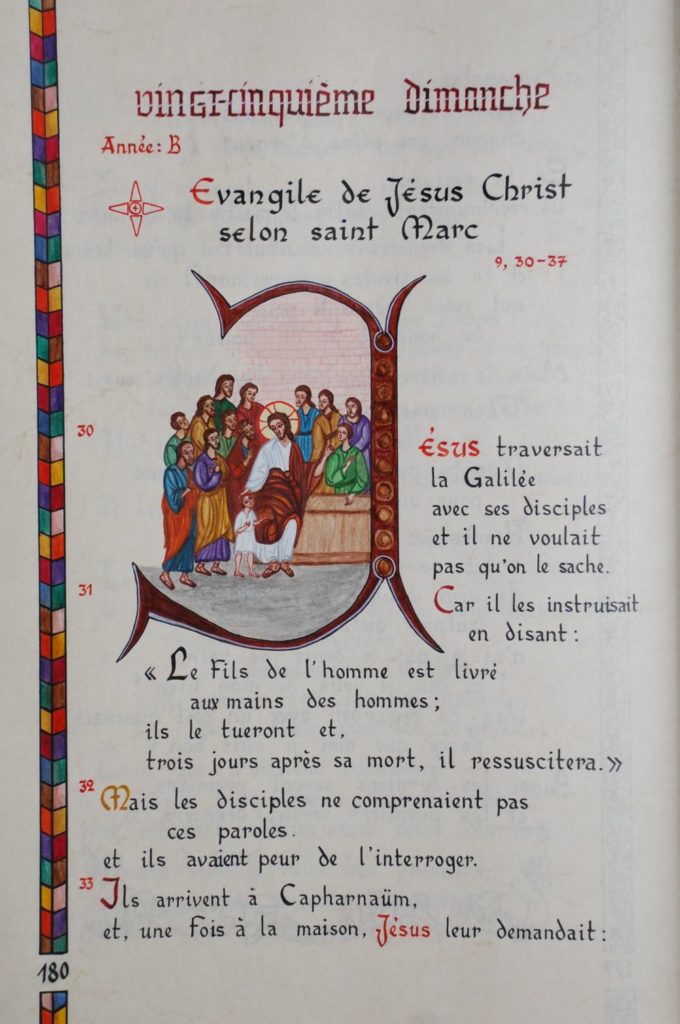 vingt-cinquième dimanche
Année: B
Evangile de Jésus Christ
selon saint Marc
9, 30-37
30
Jésus traversait
la Galilée
avec ses disciples
et il ne voulait
pas qu'on le sache.
31
Car il les instruisait
en disant:
« Le Fils de l'homme est livré
aux mains des hommes;
ils le tueront et,
trois jours après sa mort, il ressuscitera.»
32
Mais les disciples ne comprenaient pas
ces paroles.
et ils avaient peur de l'interroger.
33
Ils arrivent à Capharnaüm,
et, une fois à la maison, Jésus leur demandait:
180